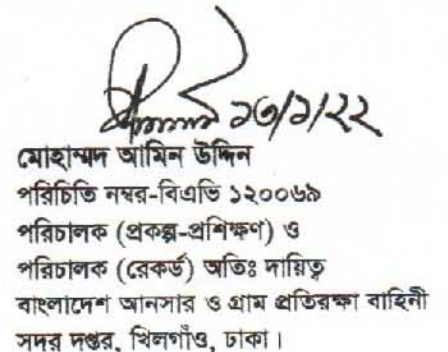 ১৩/১/২২
মোহাম্মদ আমিন উদ্দিন
পরিচিতি নম্বর-বিএভি ১২০০৬৯
পরিচালক (প্রকল্প-প্রশিক্ষণ) ও
পরিচালক (রেকর্ড) অতিঃ দায়িত্ব
বাংলাদেশ আনসার ও গ্রাম প্রতিরক্ষা বাহিনী
সদর দপ্তর, খিলগাঁও, ঢাকা।